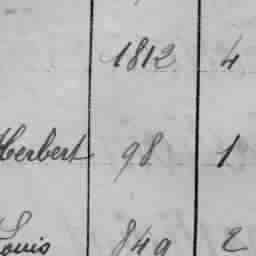 1812 4
Herbert 98 1
Louis 849 2